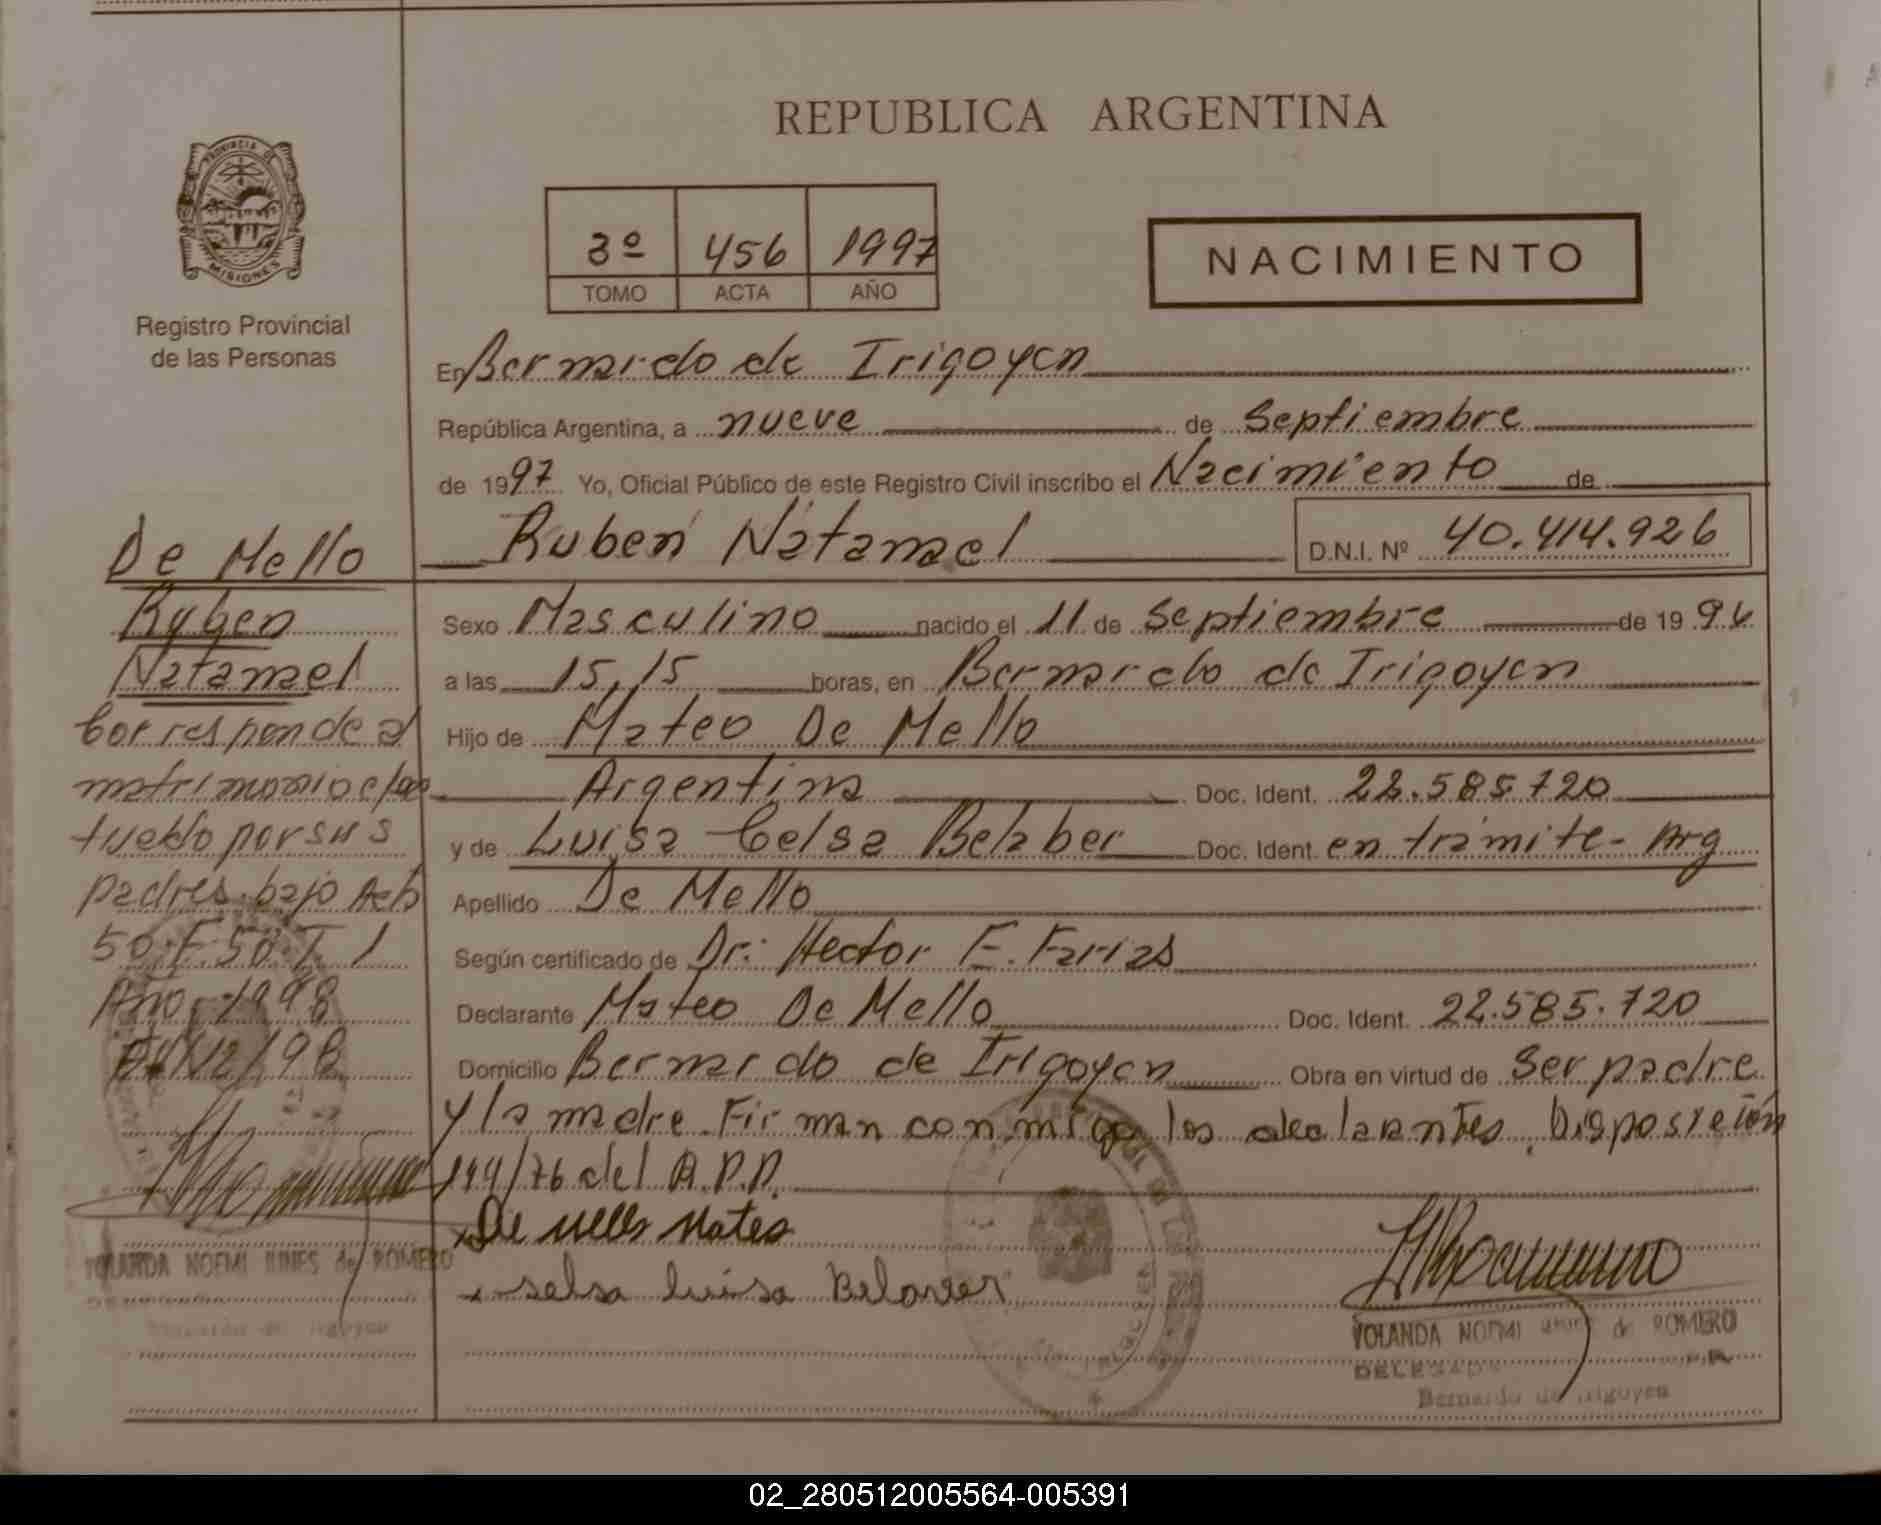 REPUBLICA ARGENTINA
PROVINCIA DE
MISIONES
Registro Provincial
de las Personas
3º 456 1997
TOMO ACTA AÑO
NACIMIENTO
En Bernardo de Irigoyen
República Argentina, a nueve de Septiembre
de 1997 Yo, Oficial Público de este Registro Civil inscribo el Nacimiento de
Ruben Natanael D.N.I. Nº 40.414.926
Sexo Masculino nacido el 11 de Septiembre de 19
a las 15,15 horas, en Bernardo de Irigoyen
Hijo de Mateo De Mello
Argentina Doc. Ident. 22.585.720
y de Luisa Celsa Doc. Ident. en trámite- Arg
Apellido De Mello
Según certificado de Dr: Hector E. Farias
Declarante Mateo De Mello Doc. Ident. 22.585.720
Domicilio Bernardo de Irigoyen Obra en virtud de Ser padre
y la madre. Firman conmigo los declarantes. Disposición
/76 del R.P.P.
De Mello Mateo
selsa luisa
YOLANDA NOEMI de ROMERO
DELEGADA
Bernardo de Irigoyen
De Mello
Ruben
Natanael
Corresponde al
matrimonio efec
tuado por sus
padres bajo Acta
50. F. 50. T. 1
Año 1998
/12/98
YOLANDA NOEMI de ROMERO
Bernardo de Irigoyen
02_280512005564-005391